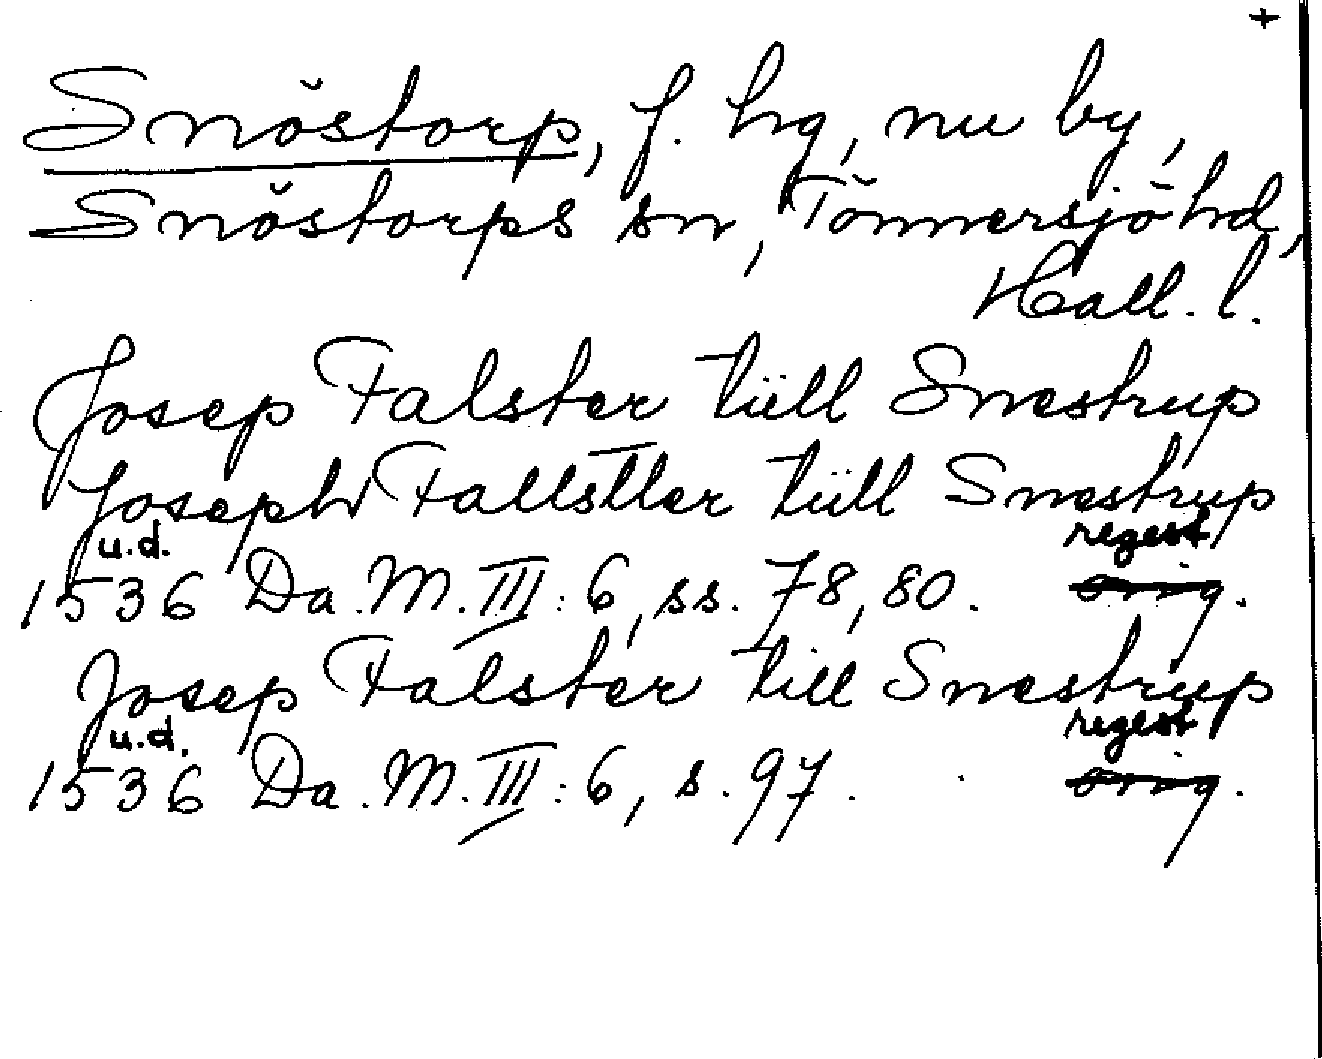 +
Snöstorp, f. hg, nu by,
Snöstorps sn, Tönnersjö hd,
Hall. l.
Josep Falster tüll Snestrup
Joseph Fallstler tüll Snestrup
u.d. regest
1536 Da. M. III: 6, ss. 78, 80. orig.
Josep Falster till Snestrup
u.d. regest
1536 Da. M. III: 6, s. 97. orig.